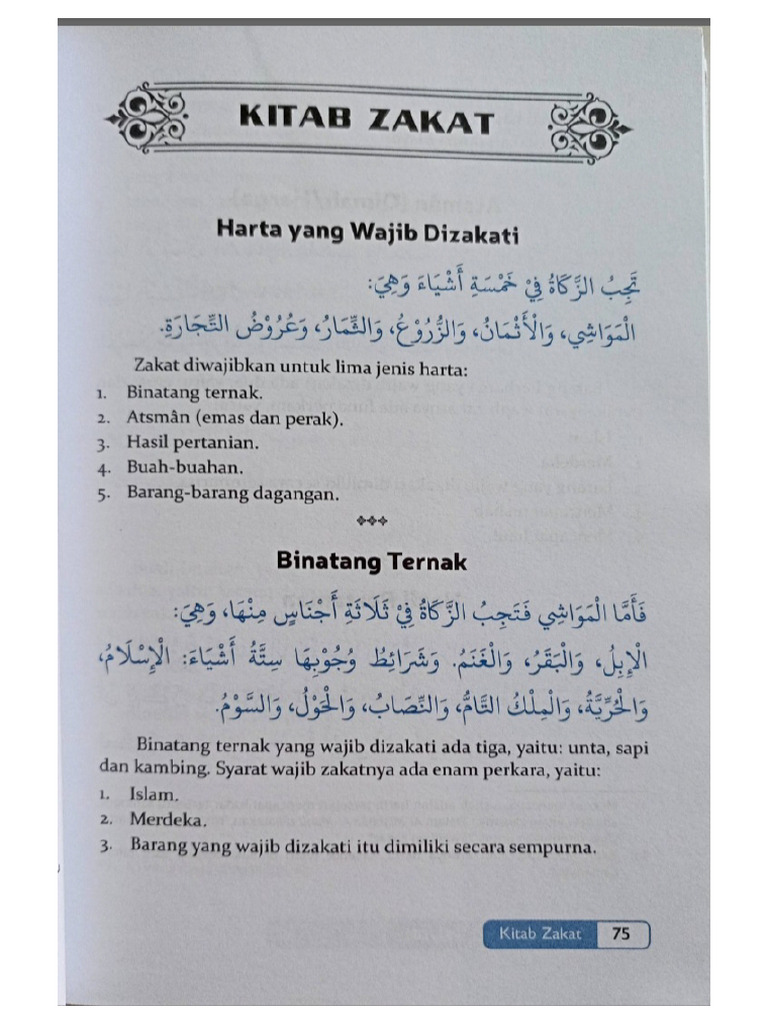 KITAB ZAKAT
Harta yang Wajib Dizakati
تَجِبُ الزَّكَاةُ فِيْ خَمْسَةِ أَشْيَاءَ وَهِيَ:
الْمَوَاشِي، وَالْأَثْمَانُ، وَالزُّرُوْعُ، وَالثِّمَارُ، وَعُرُوْضُ التِّجَارَةِ.
Zakat diwajibkan untuk lima jenis harta:
1. Binatang ternak.
2. Atsmân (emas dan perak).
3. Hasil pertanian.
4. Buah-buahan.
5. Barang-barang dagangan.
Binatang Ternak
فَأَمَّا الْمَوَاشِي فَتَجِبُ الزَّكَاةُ فِيْ ثَلَاثَةِ أَجْنَاسٍ مِنْهَا، وَهِيَ:
الْإِبِلُ، وَالْبَقَرُ، وَالْغَنَمُ. وَشَرَائِطُ وُجُوْبِهَا سِتَّةُ أَشْيَاءَ: الْإِسْلَامُ،
وَالْحُرِّيَّةُ، وَالْمِلْكُ التَّامُّ، وَالنِّصَابُ، وَالْحَوْلُ، وَالسَّوْمُ.
Binatang ternak yang wajib dizakati ada tiga, yaitu: unta, sapi
dan kambing. Syarat wajib zakatnya ada enam perkara, yaitu:
1. Islam.
2. Merdeka.
3. Barang yang wajib dizakati itu dimiliki secara sempurna.
Kitab Zakat 75